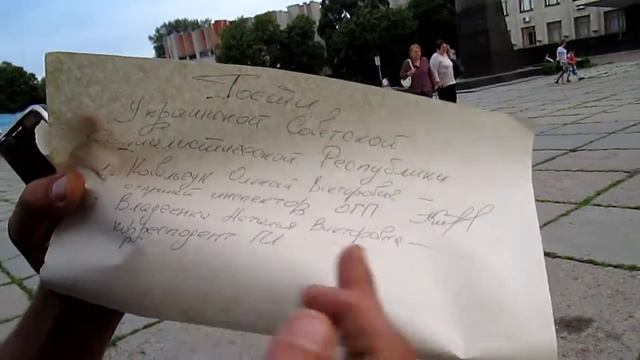 Гости
Украинской Советской
Социалистической Республики
1. Ковальчук Викторовна –
старший инспектор ОГП
Владеенко Наталия Викторовна –
корреспондент